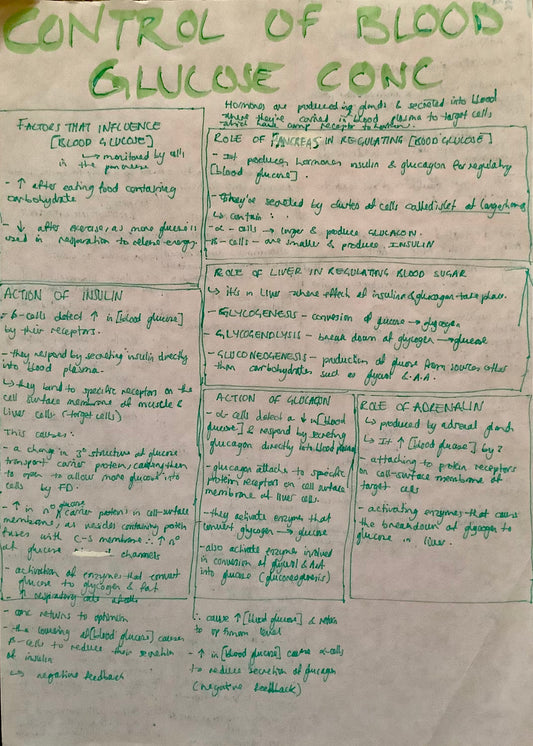 CONTROL OF BLOOD
GLUCOSE CONC
Hormones are produced in glands & secreted into blood
where they're carried in blood plasma to target cells
which have comp receptor to hormone.
FACTORS THAT INFLUENCE
[BLOOD GLUCOSE]
↳ monitored by cells
in the pancreas
- ↑ after eating food containing
carbohydrate
- ↓ after exercise, as more glucose is
used in respiration to release energy.
ROLE OF PANCREAS IN REGULATING [BLOOD GLUCOSE]
- It produces hormones insulin & glucagon for regulating
[blood glucose].
- They're secreted by clusters of cells called islet of langerhans
↳ contain :
α- cells → larger & produce GLUCAGON.
β- cells - are smaller & produce INSULIN
ROLE OF LIVER IN REGULATING BLOOD SUGAR
↳ it's in liver where effect of insulin & glucagon take place.
- GLYCOGENESIS - conversion of glucose → glycogen
- GLYCOGENOLYSIS - break down of glycogen → glucose
- GLUCONEOGENESIS - production of glucose from sources other
than carbohydrates such as glycerol & A.A.
ACTION OF INSULIN
- β-cells detect ↑ in [blood glucose]
by their receptors.
- they respond by secreting insulin directly
into blood plasma.
↳ they bind to specific receptors on the
cell surface membrane of muscle &
liver cells (target cells)
This causes:
- a change in 3° structure of glucose
transport carrier protein, causing them
to open to allow more glucose into
cells by FD.
- ↑ in n° glucose carrier protein in cell-surface
membrane, as vesicles containing protein
fuses with C-S membrane ∴ ↑ n°
of glucose channels
- activation of enzymes that convert
glucose to glycogen & fat
↑ respiratory rate of cells
- conc returns to optimum
- the lowering of [blood glucose] causes
β-cells to reduce their secretion
of insulin
↳ negative feedback
ACTION OF GLUCAGON
- α-cells detect a ↓ in [blood
glucose] & respond by secreting
glucagon directly into blood plasma
- glucagon attaches to specific
protein receptors on cell surface
membrane of liver cells.
- they activate enzymes that
convert glycogen → glucose
- also activate enzymes involved
in conversion of glycerol & A.A
into glucose (gluconeogenesis)
∴ cause ↑ [blood glucose] & return
to optimum level
- ↑ in [blood glucose] cause α-cells
to reduce secretion of glucagon
(negative feedback)
ROLE OF ADRENALIN
↳ produced by adrenal glands
↳ It ↑ [blood glucose] by?
- attaching to protein receptors
on cell-surface membrane of
target cells
- activating enzymes that cause
the breakdown of glycogen to
glucose in liver.